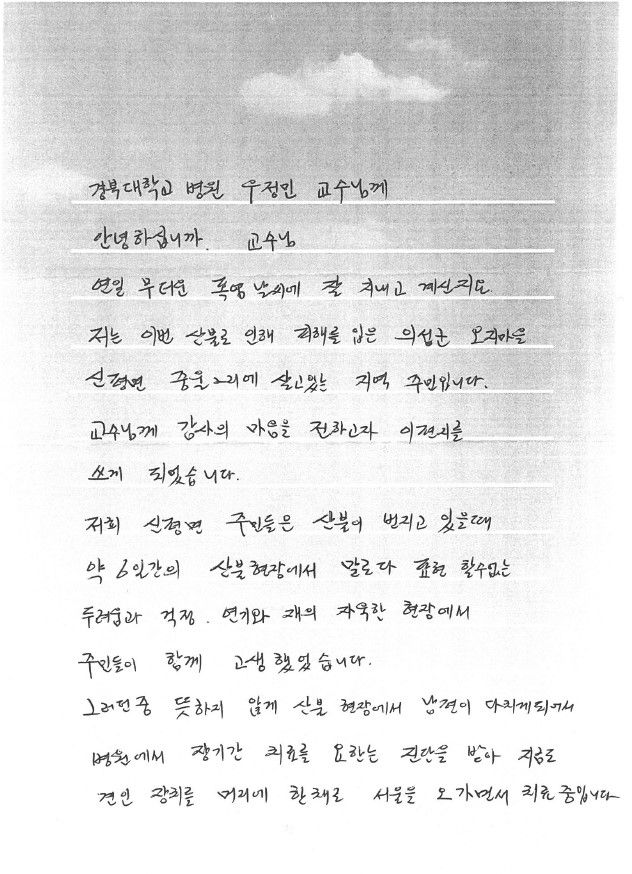 경북대학교 병원 우정민 교수님께
안녕하십니까. 교수님
연일 무더운 폭염 날씨에 잘 지내고 계신지요
저는 이번 산불로 인해 피해를 입은 의성군 오지마을
신평면 중율2리에 살고있는 지역 주민입니다.
교수님께 감사의 마음을 전하고자 이편지를
쓰게 되었습니다.
저희 신평면 주민들은 산불이 번지고 있을때
약 6일간의 산불현장에서 말로다 표현 할수없는
두려움과 걱정. 연기와 재의 자욱한 현장에서
주민들이 함께 고생했었습니다.
그러던중 뜻하지 않게 산불 현장에서 남편이 다치게되어서
병원에서 장기간 치료를 요한는 진단을 받아 지금도
견인 장치를 머리에 한채로 서울을 오가면서 치료중입니다